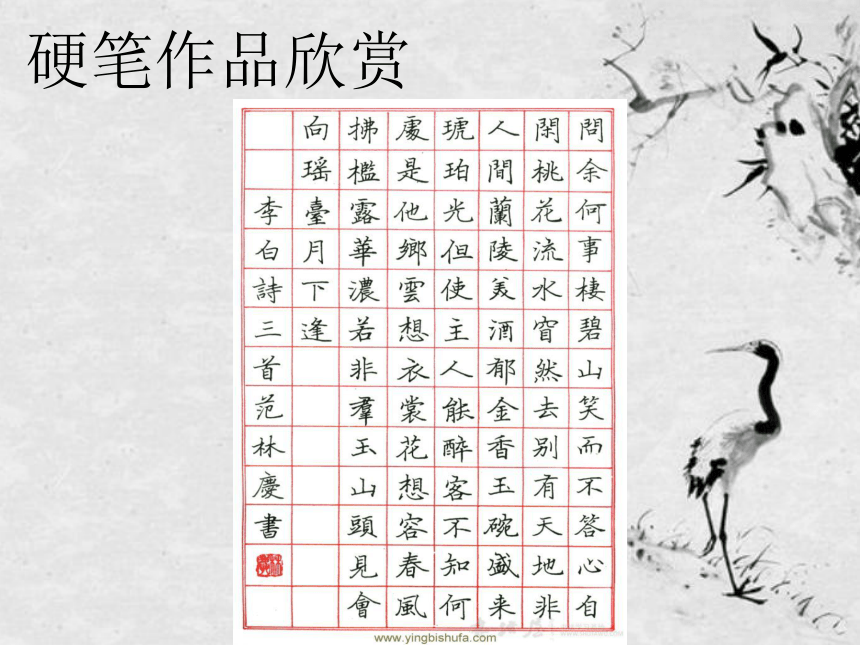 硬笔作品欣赏
問余何事棲碧山笑而不答心自
閑桃花流水窅然去别有天地非
人間蘭陵美酒郁金香玉碗盛来
琥珀光但使主人能醉客不知何
處是他鄉雲想衣裳花想容春風
拂檻露華濃若非羣玉山頭見會
向瑶臺月下逢
李白詩三首范林慶書
www.yingbishufa.com